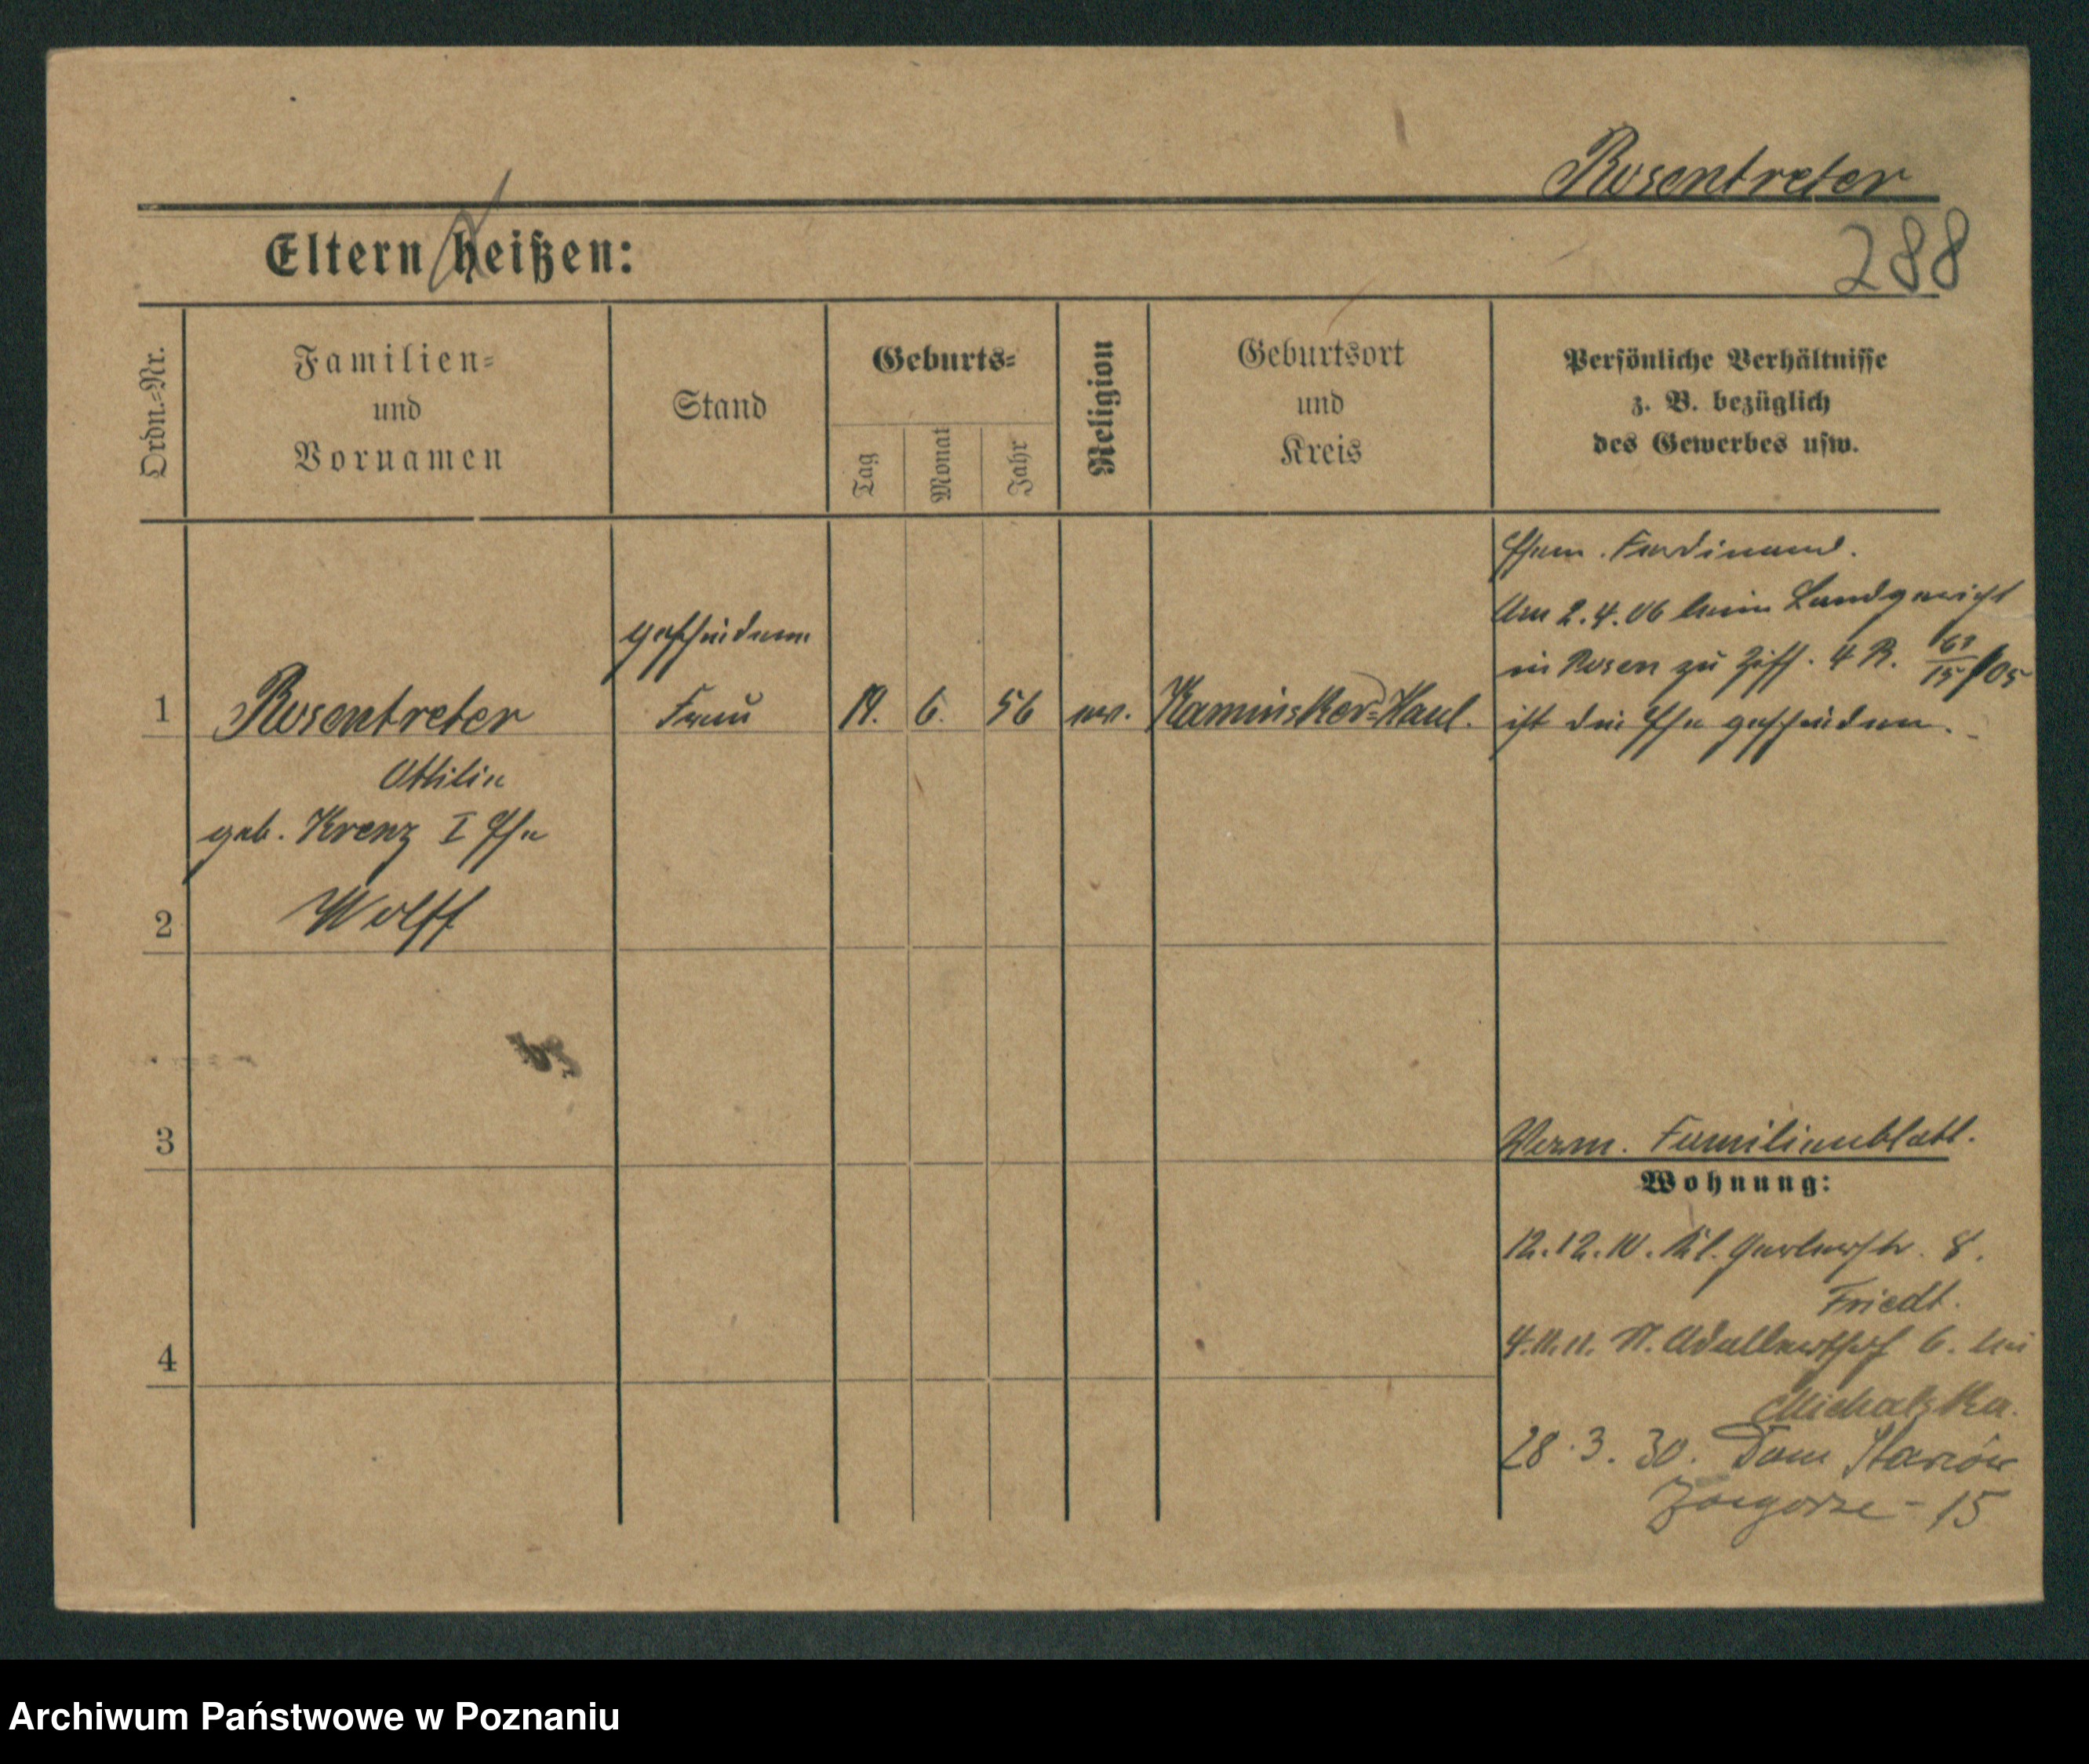 Rosentreter
Eltern heißen:
288
Ordn.-Nr.
Familien-
und
Vornamen
Stand
Geburts-
Tag
Monat
Jahr
Religion
Geburtsort
und
Kreis
Persönliche Verhältnisse
z. B. bezüglich
des Gewerbes usw.
Ehem. Ferdinand.
Am 2.4.06 beim Landgericht
in Posen zu Ziff. 4 R. /05
ist die Ehe geschieden.
1
Rosentreter
Ottilie
geb. Krenz I Ehe
Wolff
geschiedene
Frau
19. 6. 56
ev.
Kaminsker-Haul.
2
3
4
Verm. Familienblatt.
Wohnung:
12.12.10. Kl. Gerberstr. 8.
Friedt.
4.11.11. St. Adalbertstr 6. bei
Michalska.
28.3.30. Dom Starców
Zagorze - 15
Archiwum Państwowe w Poznaniu